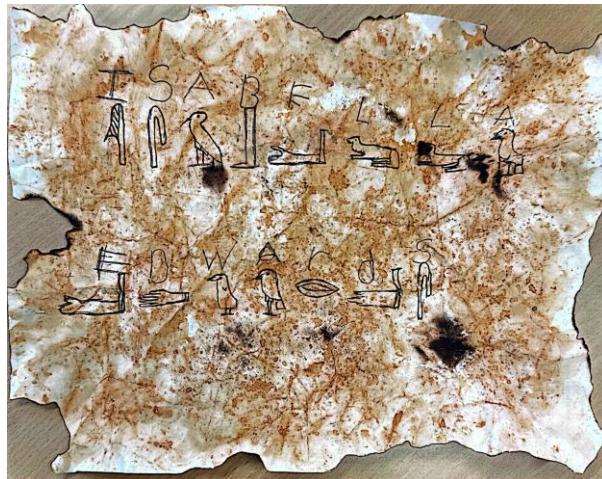 ISABELLA
EDWArdS